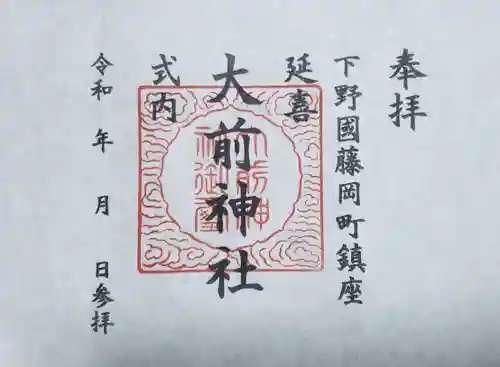 奉拝
下野國藤岡町鎮座
延喜
大前神社
式内
令和 年 月 日参拝